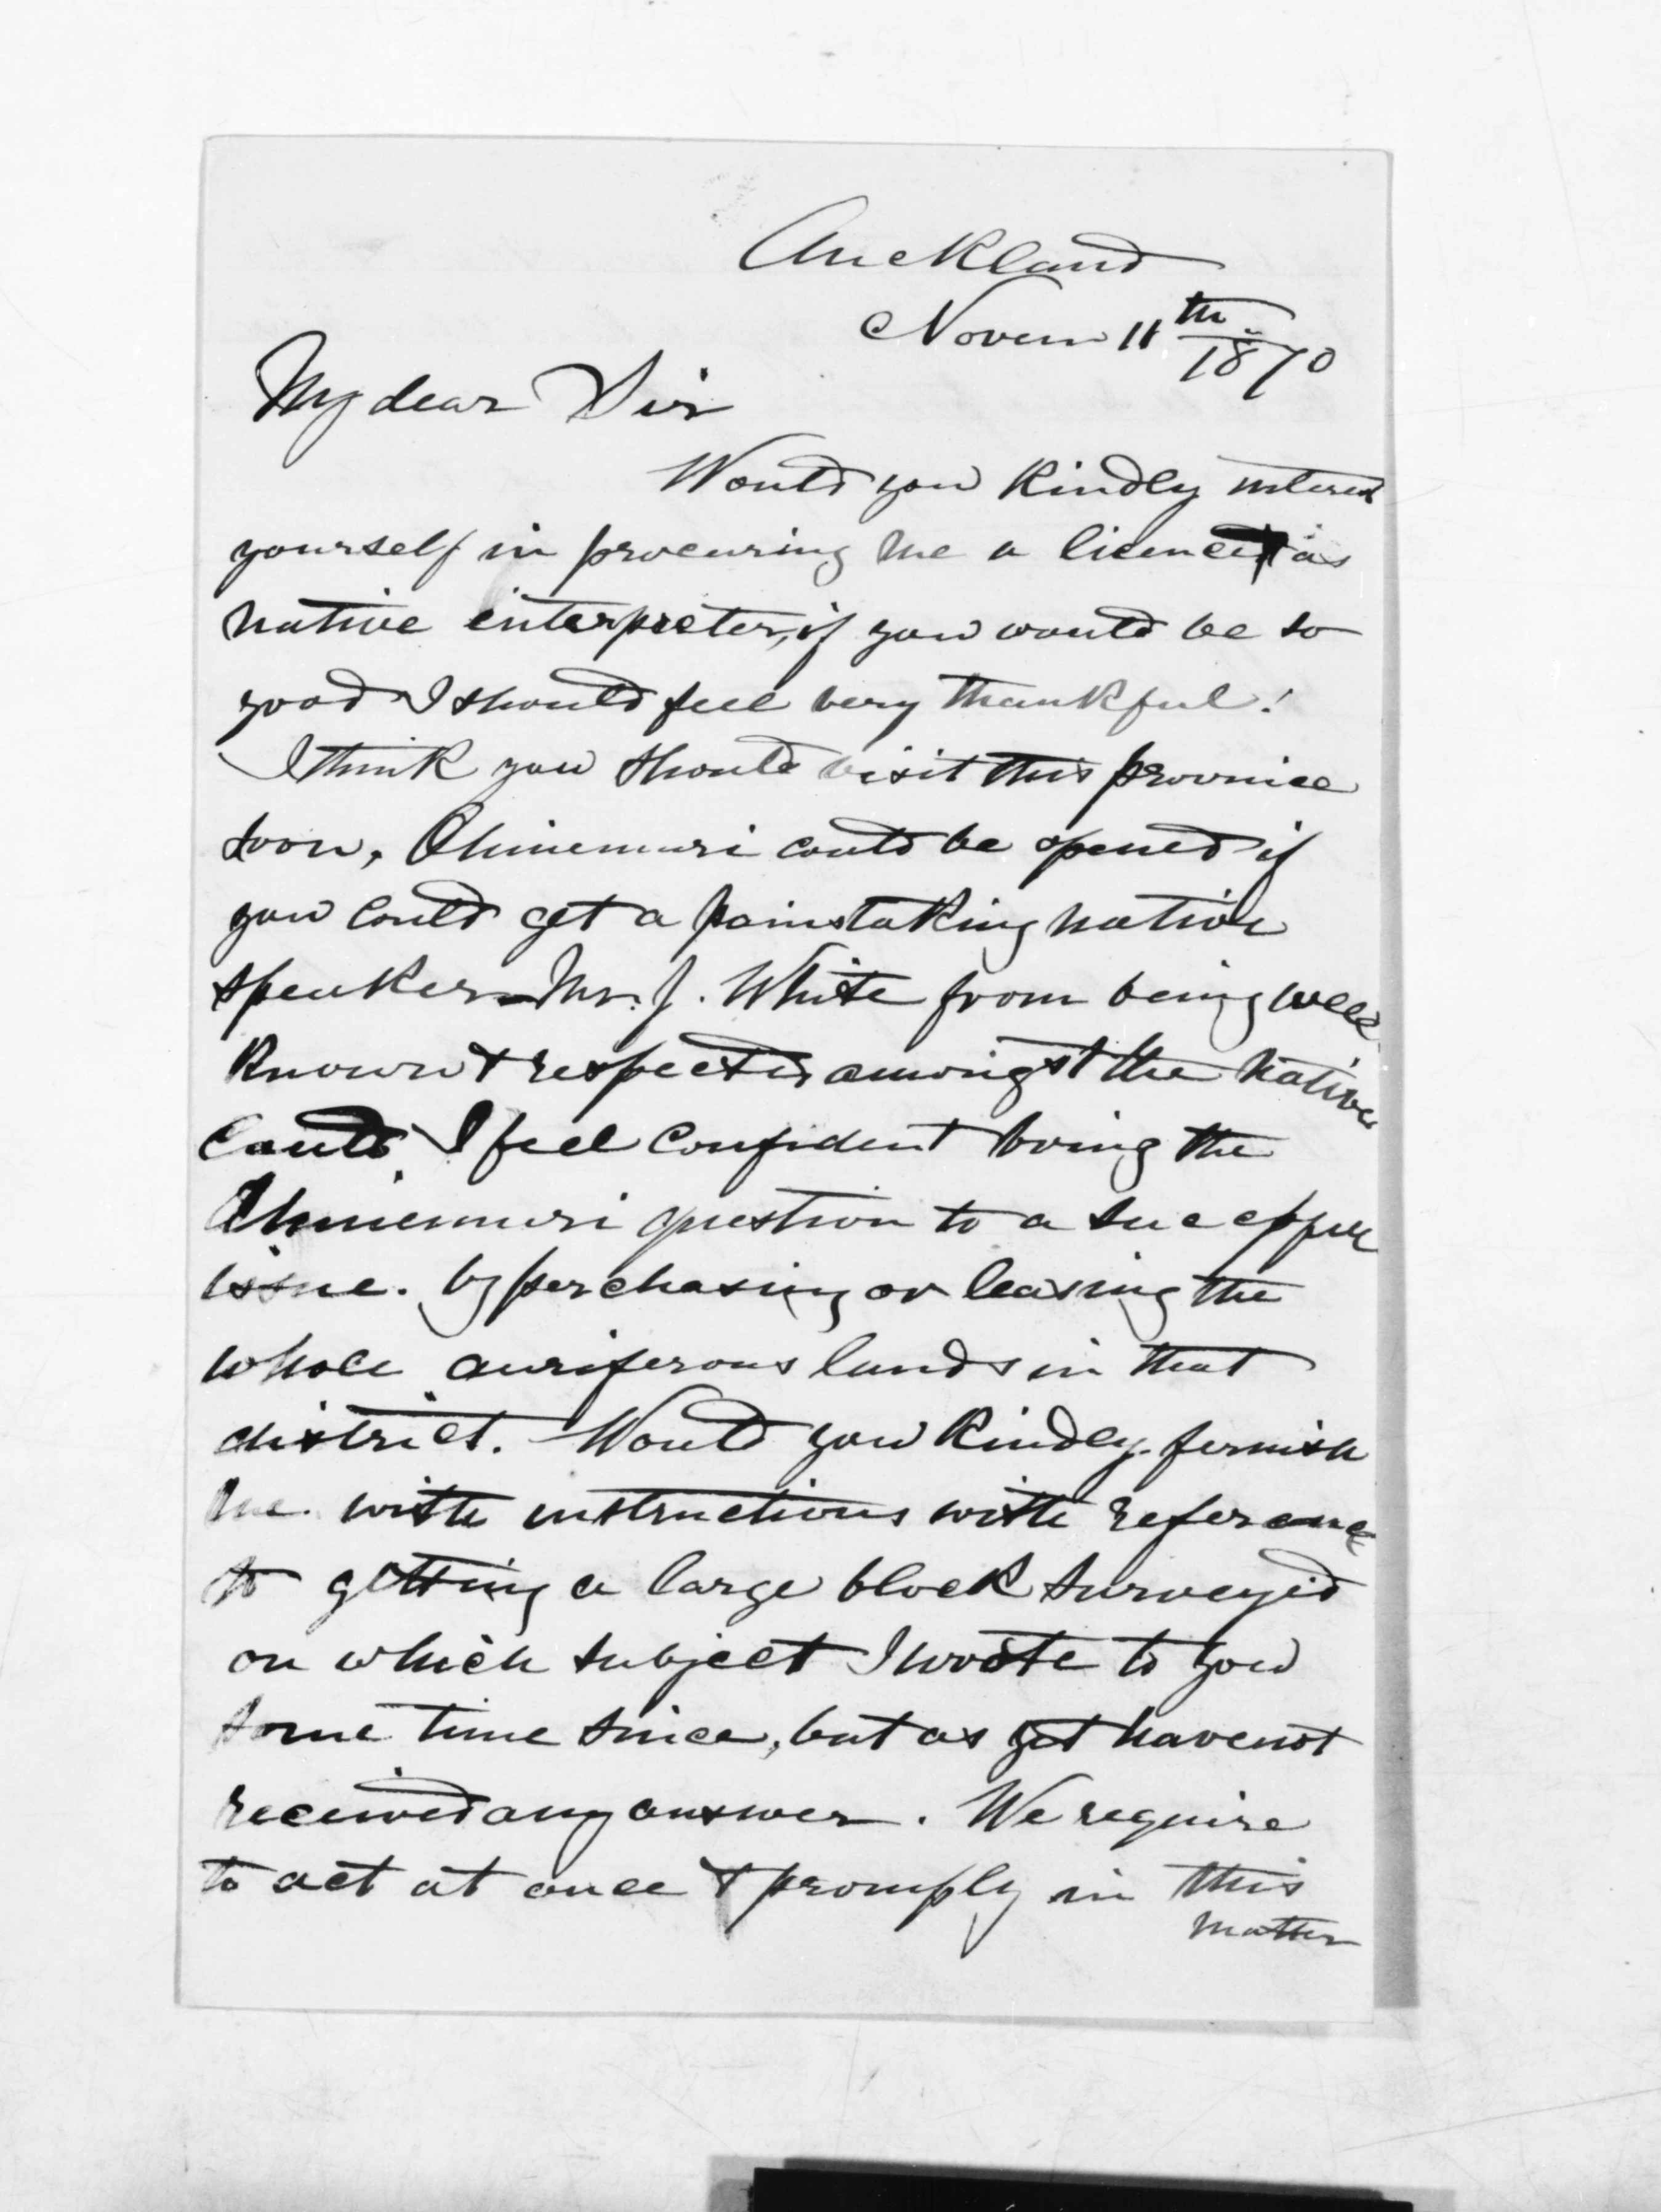 Auckland
Novem 11th 1870
My dear Sir
Would you kindly interest
yourself in procuring me a licence as
native enterpreter, if you would be so
good I should feel very thankful!
I think you should visit this province
soon, Ohinemuri could be opened if
you could get a painstaking native
speaker - Mr. J. White from being well
known & respected amongst the natives
could I feel confident bring the
Ohinemuri question to a successful
issue. by perchasing or leasing the
whole auriferous lands in that
district. Would you kindly furnish
me with instructions with reference
to getting a large block surveyed
on which subject I wrote to you
some time since, but as yet have not
received any answer. We require
to act at once & promply in this
matter